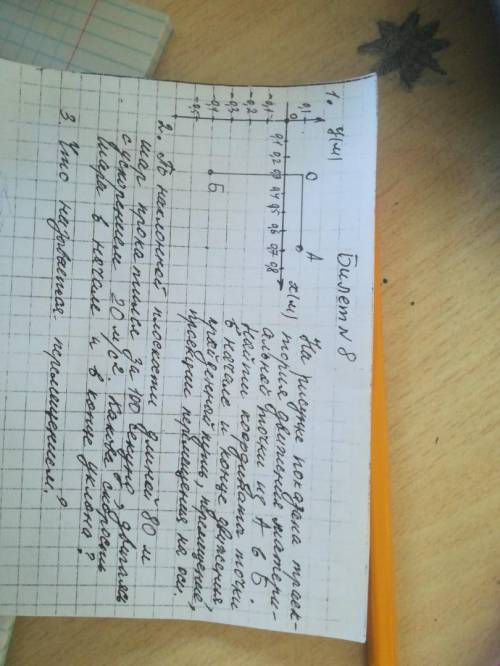 Билет N 8
1. y(м)
0,1
0
-0,1
-0,2
-0,3
-0,4
-0,5
0,1 0,2 0,3 0,4 0,5 0,6 0,7 0,8
x(м)
О
А
Б
На рисунке показана траек-
тория движения матери-
альной точки из А в Б
Найти координаты точки
в начале и конце движения
пройденный путь, перемещение,
проекции перемещения на оси.
2. По наклонной плоскости длиной 80 м
шар прокатили за 100 секунд, двигаясь
с ускорением 20 м/с². Какова скорость
шара в начале и в конце уклона?
3. Что называется перемещением?